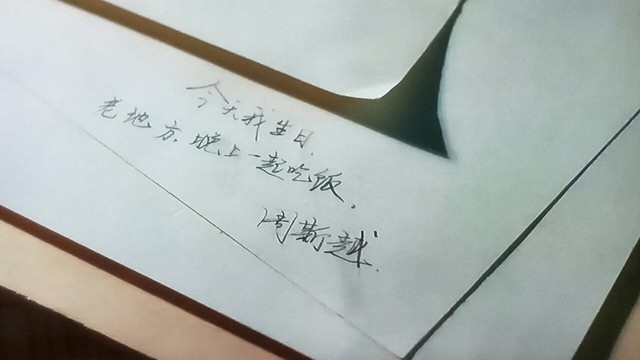 今天我生日.
老地方.晚上一起吃饭。
周斯越.